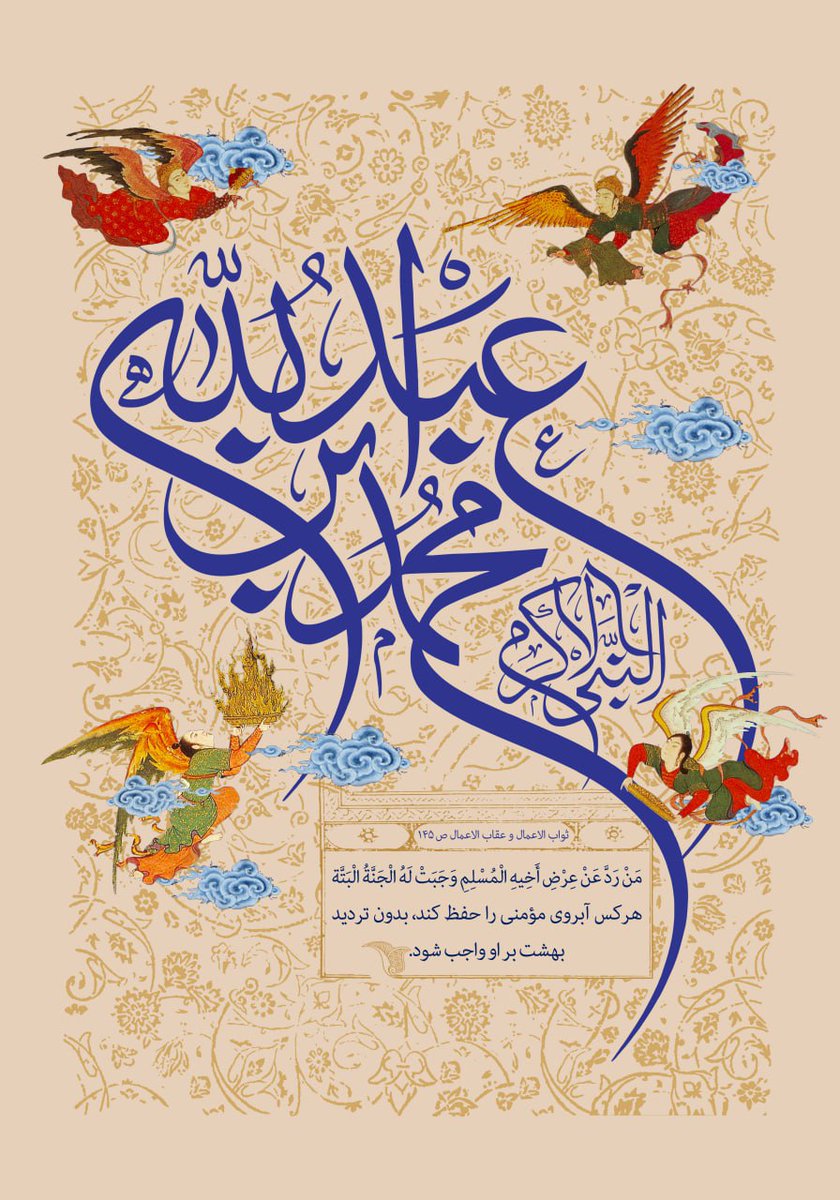 النبی الاکرم
محمد ابن
عبدالله
ثواب الاعمال و عقاب الاعمال ص ۱۴۵
مَنْ رَدَّ عَنْ عِرْضِ أَخِيهِ الْمُسْلِمِ وَجَبَتْ لَهُ الْجَنَّةُ الْبَتَّة
هرکس آبروی مؤمنی را حفظ کند، بدون تردید
بهشت بر او واجب شود.